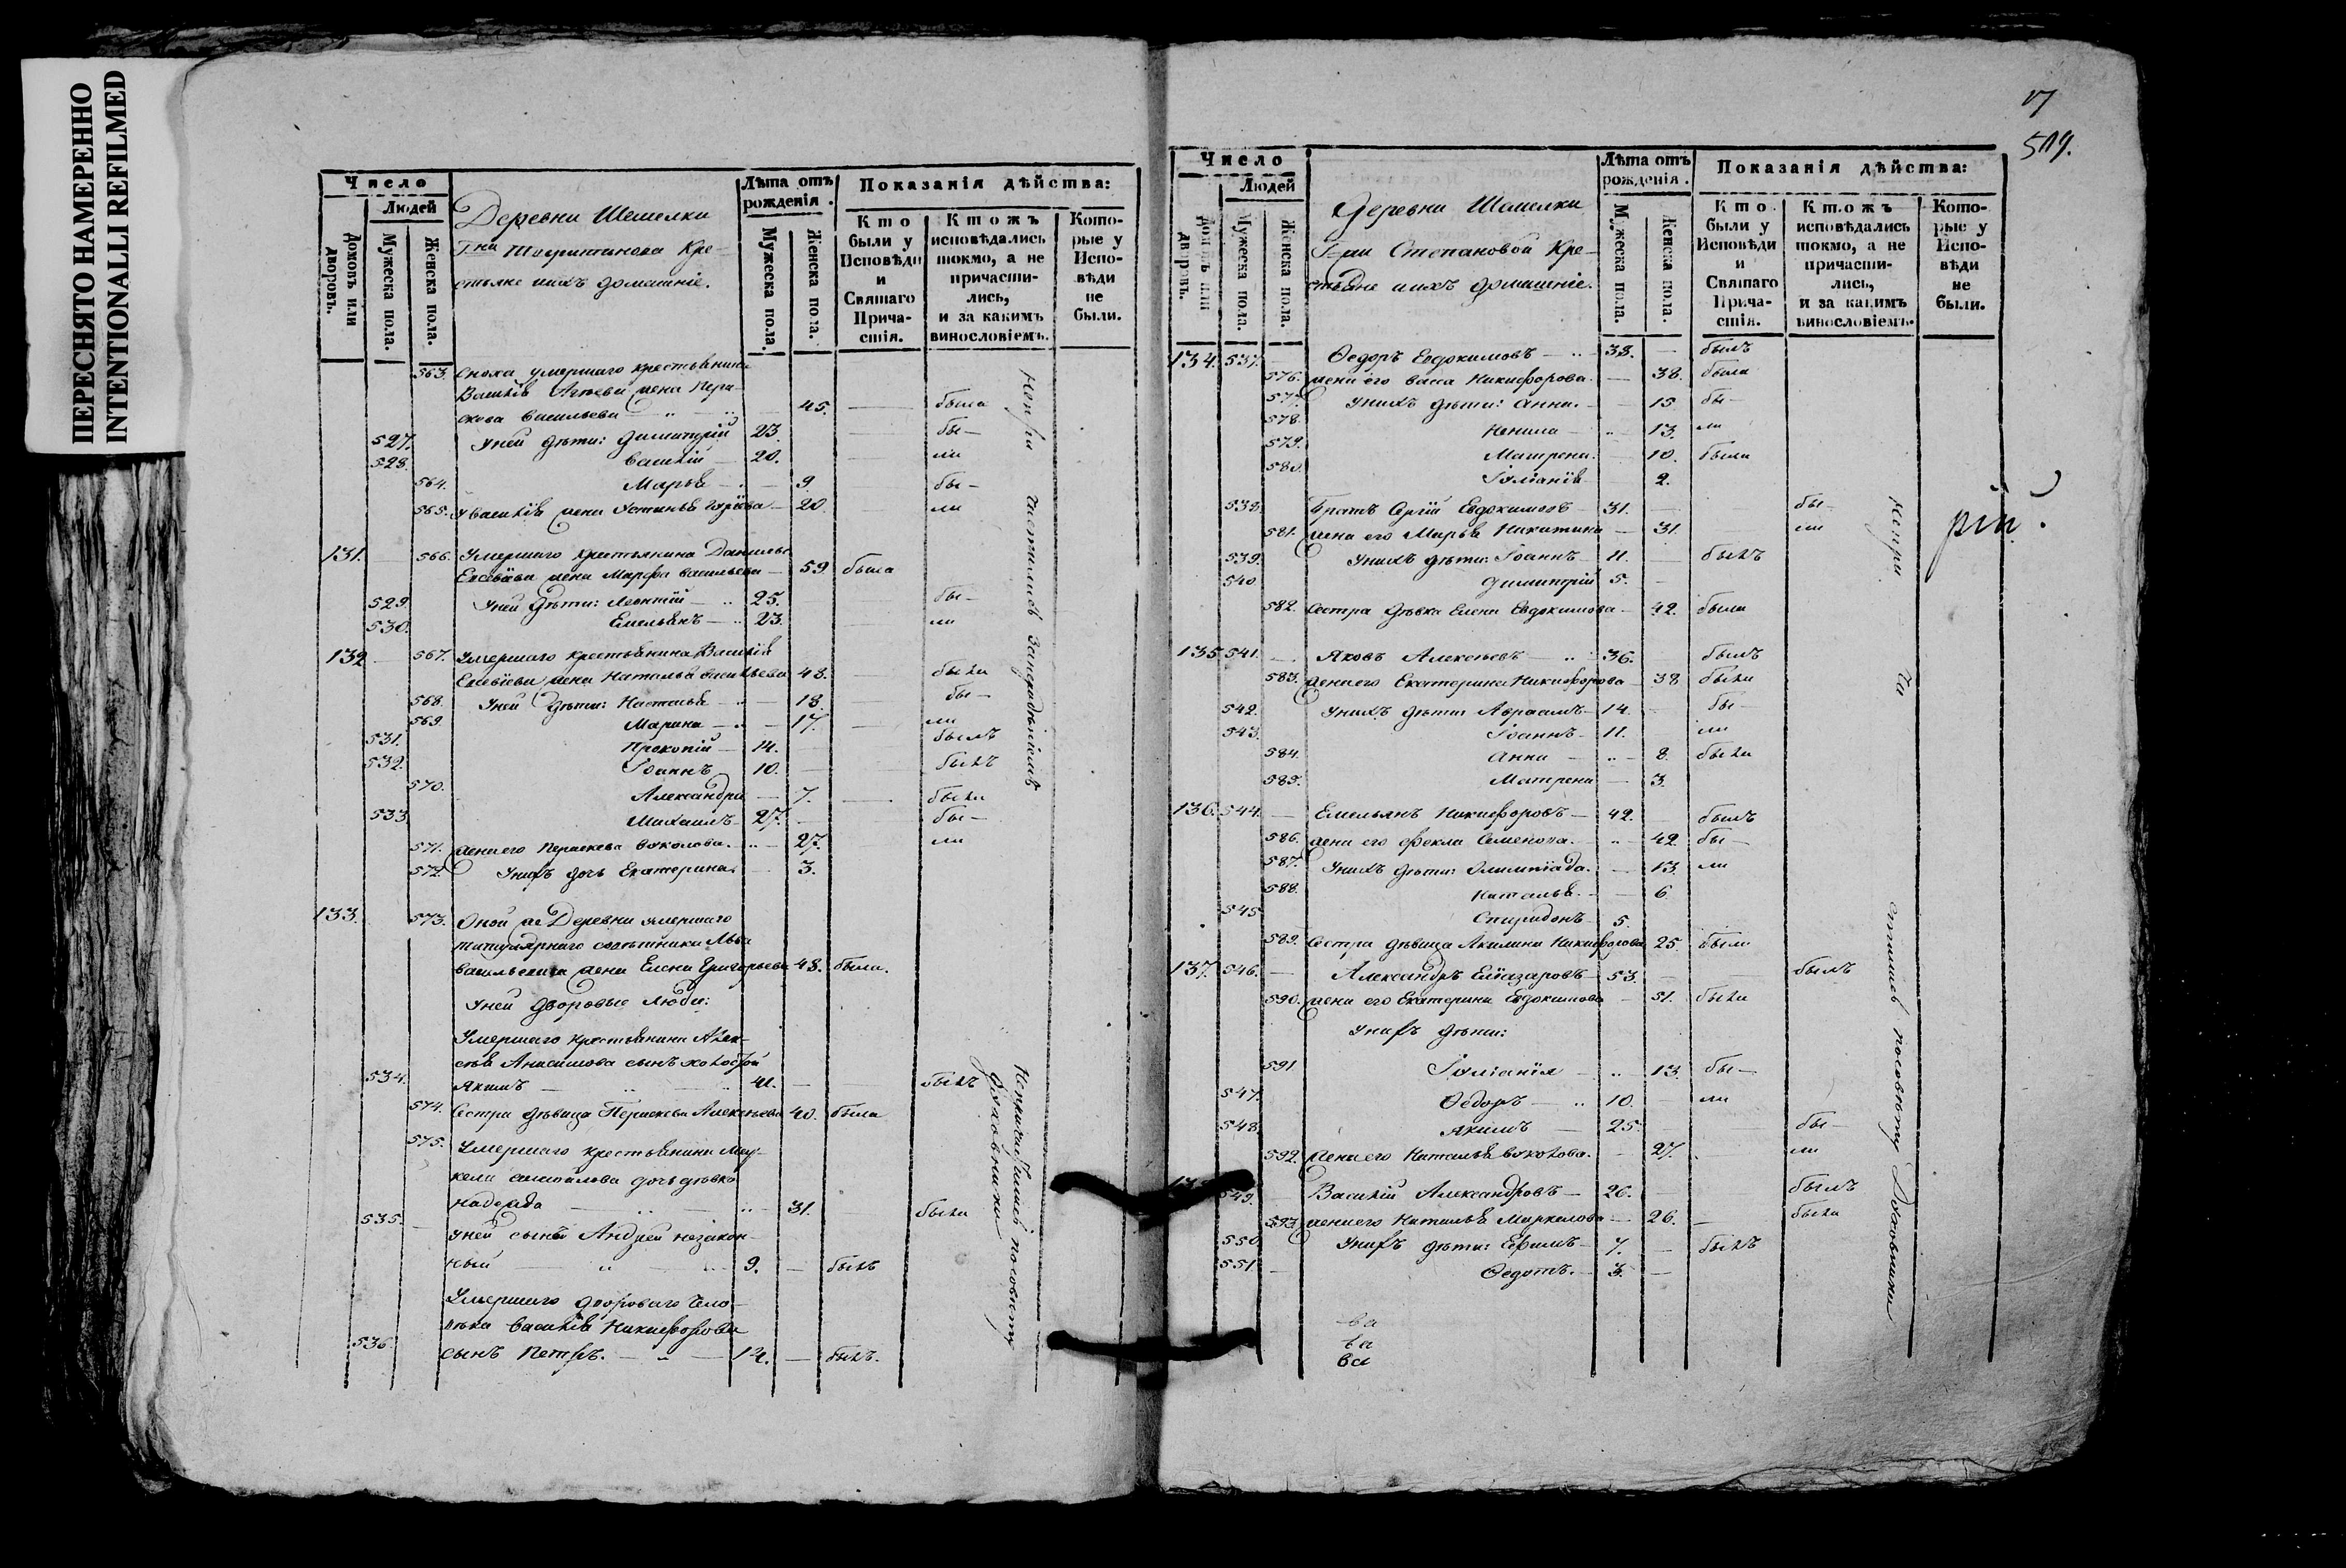 ПЕРЕСНЯТО НАМЕРЕННО
INTENTIONALLI REFILMED
Число
Людей
Домовъ или дворовъ.
Мужеска пола.
Женска пола.
Деревни Шемелки
Кре-
стьяне и ихъ домашніе.
Лѣта отъ рожденія.
Мужеска пола.
Женска пола.
Показанія дѣйства:
Кто были у Исповѣди и Святаго Прича-стія.
Ктожъ исповѣдались токмо, а не причасти-лись, и за какимъ винословіемъ.
Кото-рые у Испо-вѣди не были.
563. Сноха умершаго крестьянина
жена Пера-
скова Васильева 45. была
527. У ней дѣти: Димитрій 23. бы-
528. Василій 20. ли
564. Марья 9 бы-
565. У Василія жена Устинья 20. ли
131. 566. Умершаго крестьянина
жена Марфа Васильева 59 была
529. У ней дѣти: Леонтій 25. бы-
530. Емельянъ 23. ли
132 567. Умершаго крестьянина Василія
жена Наталья Васильева 48. была
568. У ней дѣти: Наталья 18. бы-
569. Марина 17. ли
531. Прокопій 14. былъ
532. Іоаннъ 10. былъ
570. Александра 7. была
533. Михаилъ 27. бы-
571. жена его Пераскева Вуколова. 27. ли
572. У нихъ дочь Екатерина. 3.
133. 573. Оной же Деревни умершаго
титулярнаго совѣтника Льва
Васильевича жена Елена Григорьева 48. была.
У ней дворовые люди:
Умершаго крестьянина Алек-
сѣя Анисимова сынъ холостой
534. Якимъ 41. былъ
574. Сестра дѣвица Пераскева Алексѣева 40. была
575. Умершаго крестьянина Мар-
кела дочь дѣвка
Надежда 31. была
535. У ней сынъ Андрей незакон-
ный 9. былъ
Умершаго двороваго чело-
вѣка Василія Никифорова
536. сынъ Петръ. 14. былъ.
Непри частились за нерадѣніемъ
Непричастились по совѣту духовника
17
519.
Число
Людей
Домовъ или дворовъ.
Мужеска пола.
Женска пола.
Деревни Шемелки
Г-жи Степановой Кре-
стьяне и ихъ домашніе.
Лѣта отъ рожденія.
Мужеска пола.
Женска пола.
Показанія дѣйства:
Кто были у Исповѣди и Святаго Прича-стія.
Ктожъ исповѣдались токмо, а не причасти-лись, и за какимъ винословіемъ.
Кото-рые у Испо-вѣди не были.
134. 537. Ѳедоръ Евдокимовъ 38. былъ
576. жена его Васса Никифорова 38. была
577. У нихъ дѣти: Анна. 15. бы-
578. Ненила 13. ли
579. Матрена. 10. была
580. Іуліанія 2.
538. Братъ Сергій Евдокимовъ 31. бы-
581. жена его Марья Никитина 31. ли
539. У нихъ дѣти: Іоаннъ 11. былъ
540. Димитрій 5.
582. Сестра дѣвка Елена Евдокимова 42. была
135. 541. Яковъ Алексѣевъ 36. былъ
583. жена его Екатерина Никифорова 38 была
542. У нихъ дѣти: Авраамъ 14. бы-
543. Іоаннъ 11. ли
584. Анна 8. была
585. Матрена 3.
136. 544. Емельянъ Никифоровъ 42. былъ
586. жена его Ѳекла Семенова. 42 бы-
587. У нихъ дѣти: Олимпіада. 13. ли
588. Наталья. 6
545. Спиридонъ 5.
589. Сестра дѣвица Акилина Никифорова 25. была
137. 546. Александръ Еліазаровъ 53. былъ
590. жена его Екатерина Евдокимова 51. была
У нихъ дѣти:
591 Іуліанія 13. бы-
547. Ѳедоръ 10. ли
548. Якимъ 25. бы-
592. жена его Наталья Вуколова. 27. ли
549. Василій Александровъ 26. былъ
593. жена его Наталья Маркелова 26. была
550 У нихъ дѣти: Ефимъ 7. былъ
551. Ѳедотъ. 3.
Непри ча стились по совѣту Духовника
рій.
ва
ва
ва